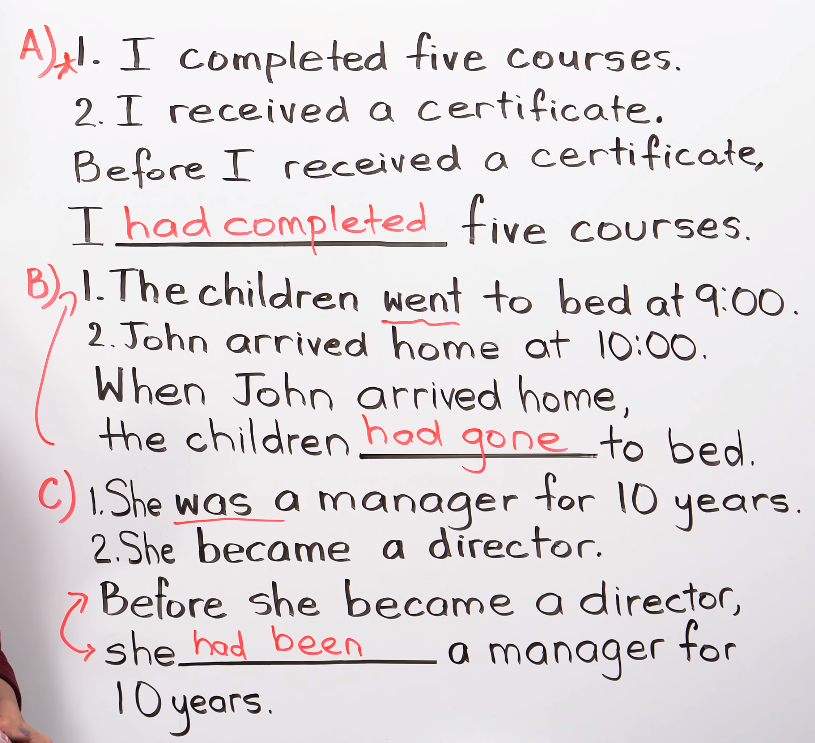 A) * 1. I completed five courses.
2. I received a certificate.
Before I received a certificate,
I had completed five courses.
B) 1. The children went to bed at 9:00.
2. John arrived home at 10:00.
When John arrived home,
the children had gone to bed.
C) 1. She was a manager for 10 years.
2. She became a director.
Before she became a director,
she had been a manager for
10 years.